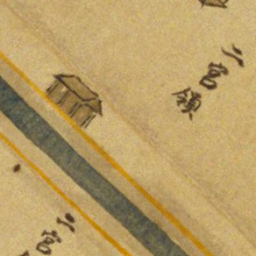 二宮領
二宮